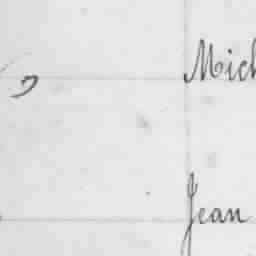 Mich
Jean